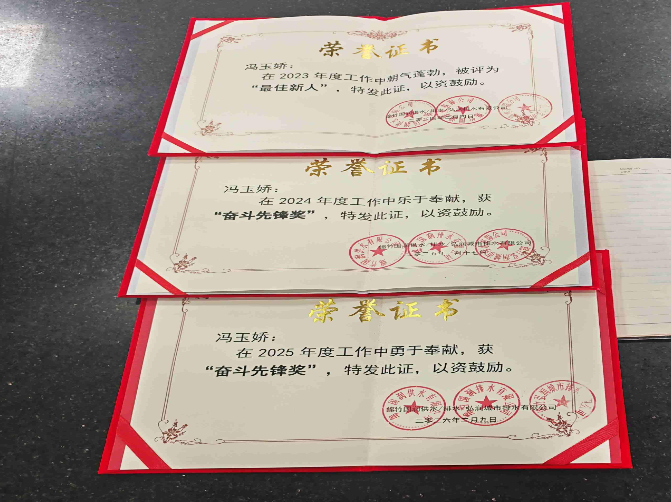 荣誉证书
冯玉娇：
在 2023 年度工作中朝气蓬勃，被评为
“最佳新人”，特发此证，以资鼓励。
荣誉证书
冯玉娇：
在 2024 年度工作中乐于奉献，获
“奋斗先锋奖”，特发此证，以资鼓励。
荣誉证书
冯玉娇：
在 2025 年度工作中勇于奉献，获
“奋斗先锋奖”，特发此证，以资鼓励。
二〇二六年二月九日